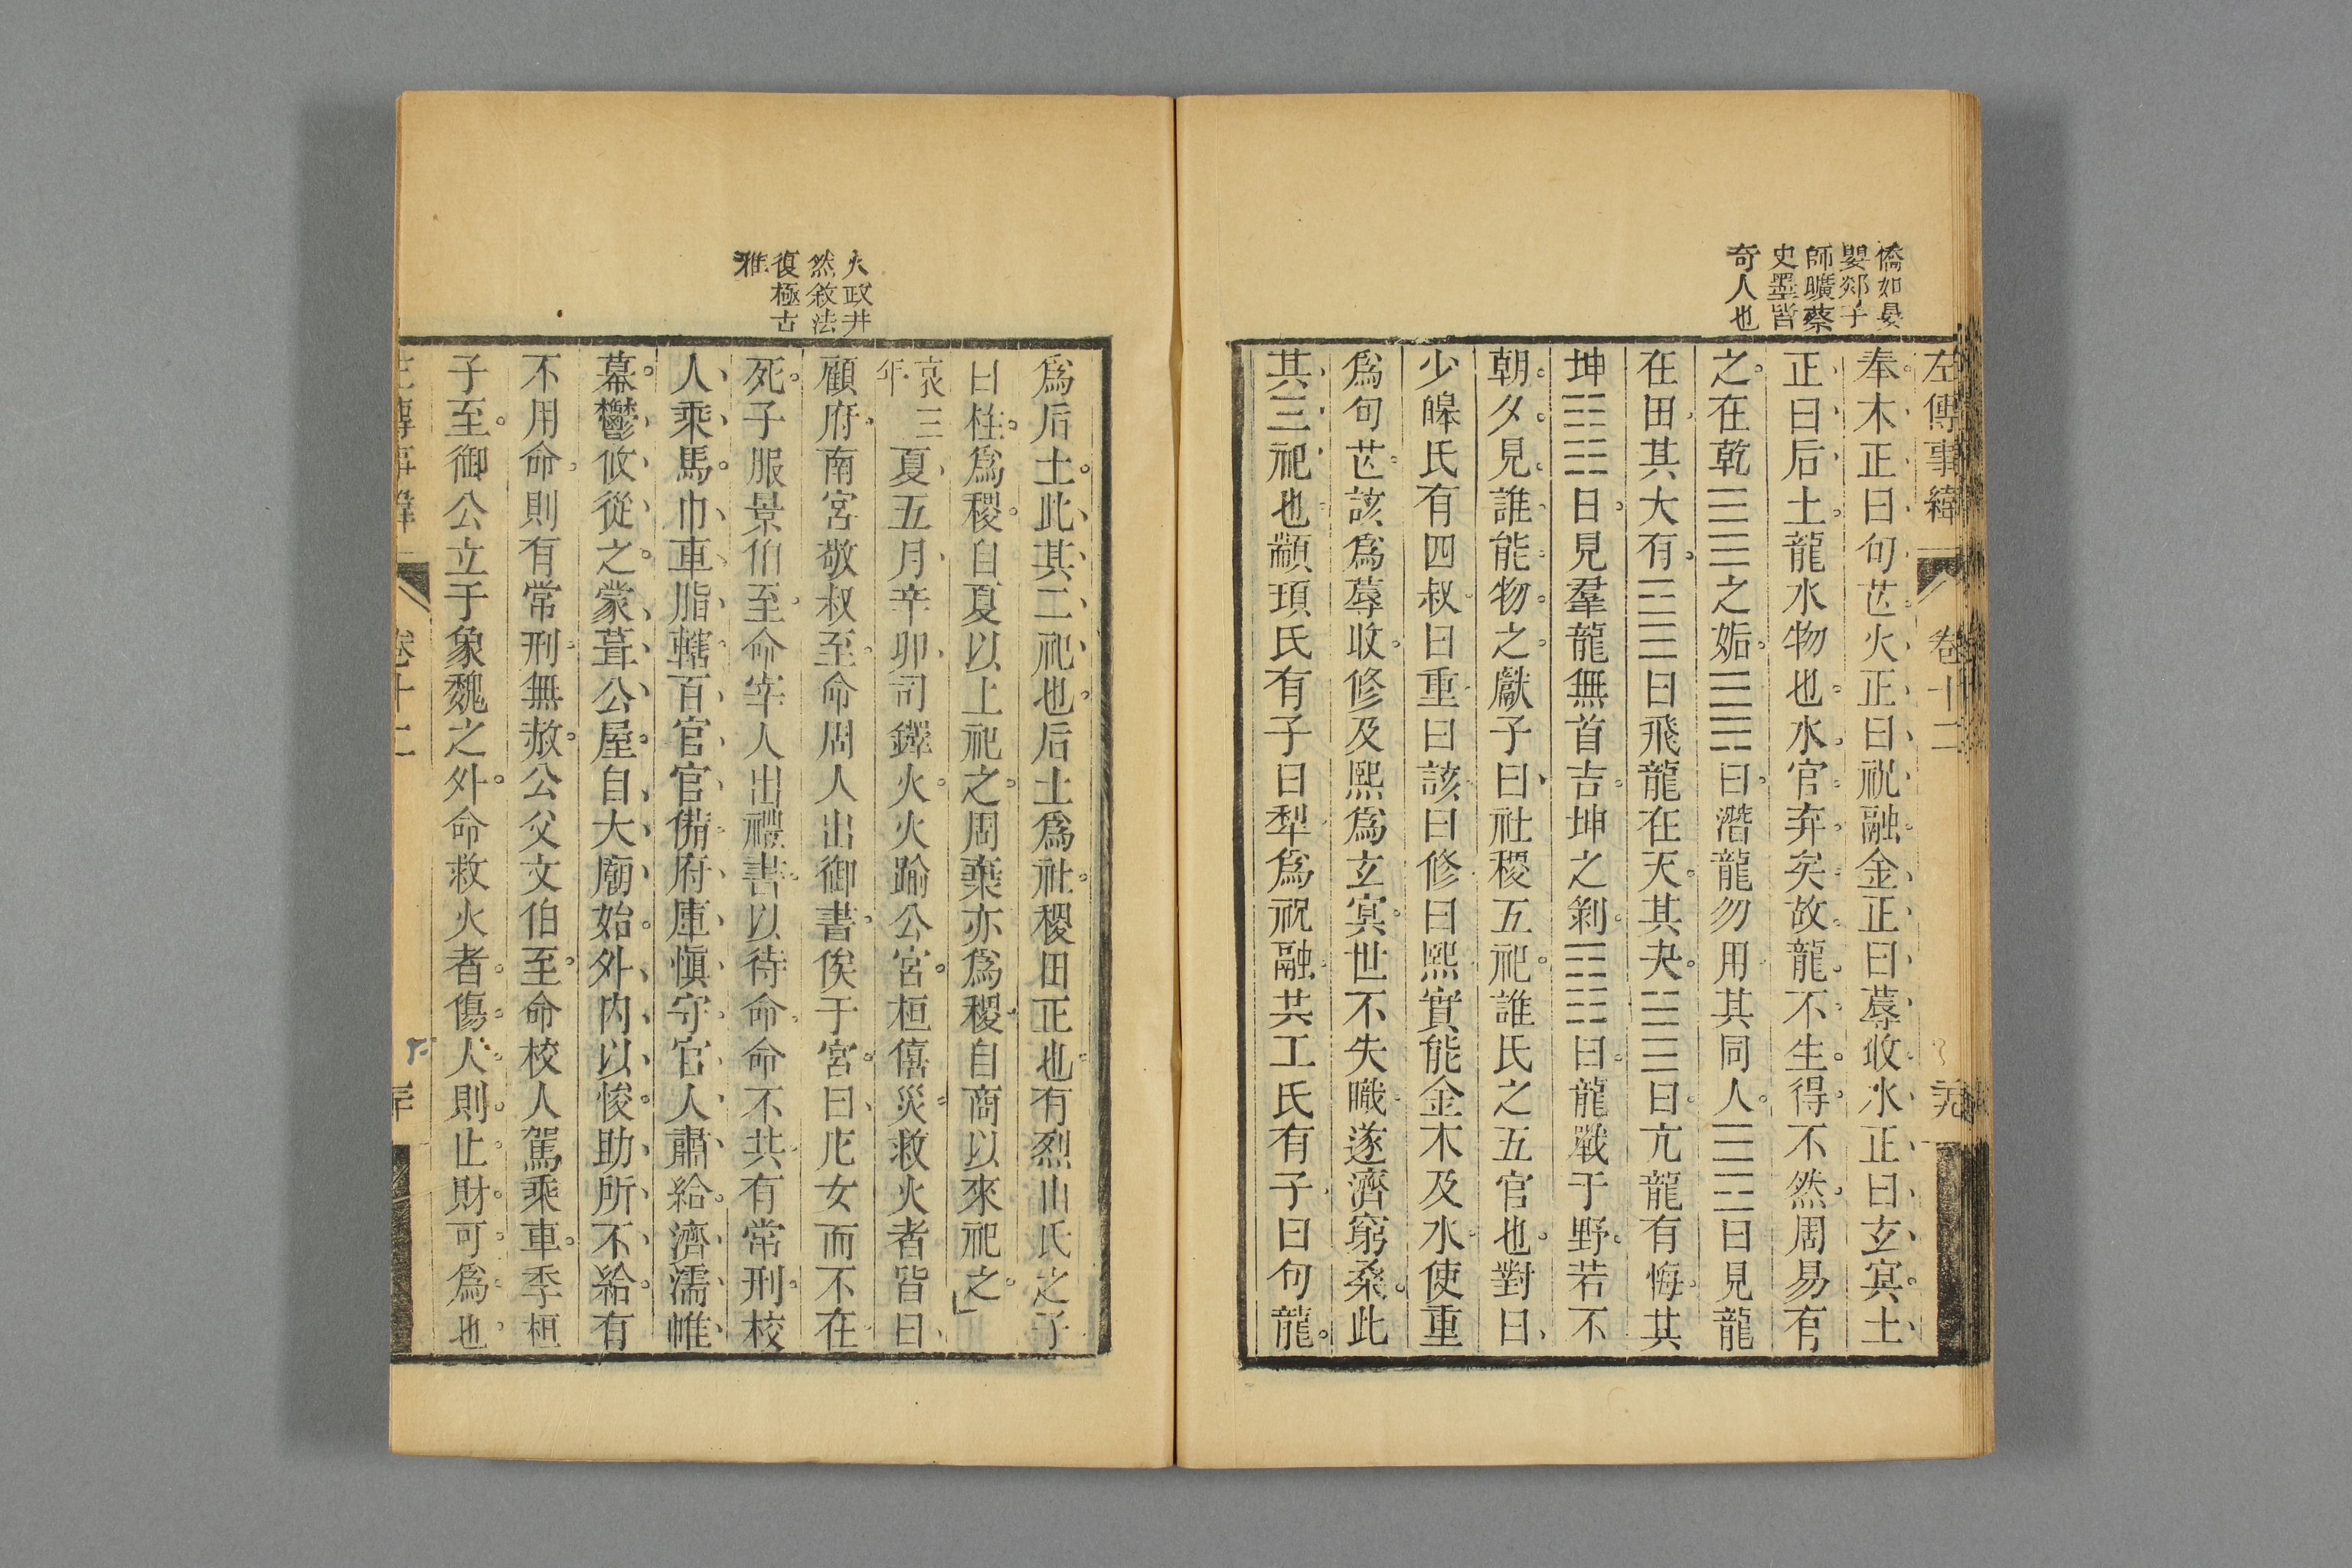 僑如晏
嬰郯子
師曠蔡
史墨皆
奇人也
左傳事緯
卷十二
奉木正曰句芒火正曰祝融金正曰蓐收水正曰玄冥土
正曰后土龍水物也水官弃矣故龍不生得不然周易有
之在乾䷀之姤䷫曰潛龍勿用其同人䷌曰見龍
在田其大有䷍曰飛龍在天其夬䷪曰亢龍有悔其
坤䷁曰見羣龍無首吉坤之剝䷖曰龍戰于野若不
朝夕見誰能物之獻子曰社稷五祀誰氏之五官也對曰
少皞氏有四叔曰重曰該曰修曰熙實能金木及水使重
爲句芒該爲蓐收修及熙爲玄冥世不失職遂濟窮桑此
其三祀也顓頊氏有子曰犁爲祝融共工氏有子曰句龍
火政井
然敘法
復極古
雅
爲后土此其二祀也后土爲社稷田正也有烈山氏之子
曰柱爲稷自夏以上祀之周棄亦爲稷自商以來祀之
哀三年夏五月辛卯司鐸火火踰公宮桓僖災救火者皆曰
顧府南宮敬叔至命周人出御書俟于宮曰庀女而不在
死子服景伯至命宰人出禮書以待命命不共有常刑校
人乘馬巾車脂轄百官官備府庫愼守官人肅給濟濡帷
幕鬱攸從之蒙葺公屋自大廟始外內以悛助所不給有
不用命則有常刑無赦公父文伯至命校人駕乘車季桓
子至御公立于象魏之外命救火者傷人則止財可爲也